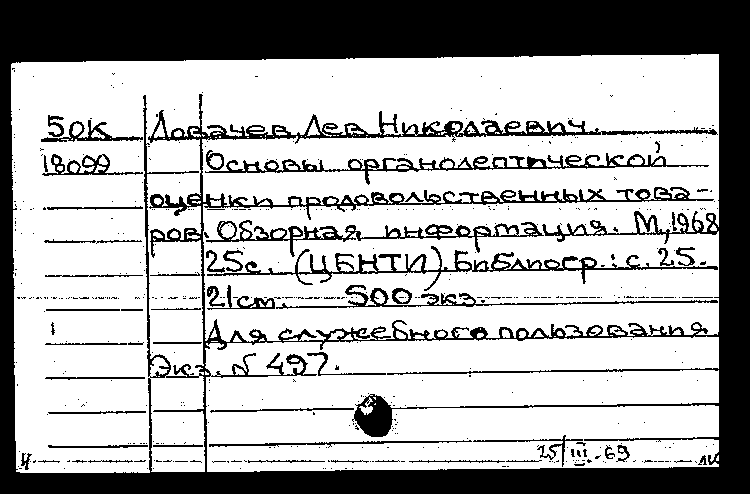 50К Ловачев, Лев Николаевич.
18099 Основы органолептической
оценки продовольственных това-
ров. Обзорная информация. М., 1968
25с. (ЦБНТИ). Библиогр.: с. 25.
21см. 500 экз.
1 Для служебного пользования
Экз. № 497.
25/III.-69